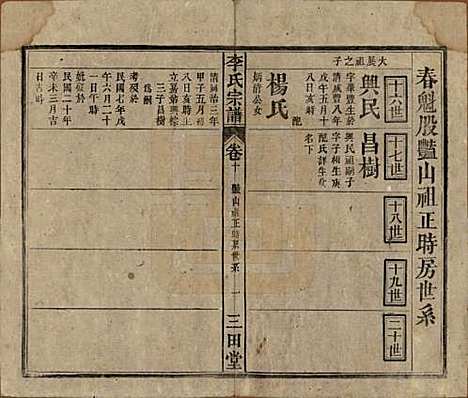 春魁股豔山祖正時房世系
十六世
十七世
十八世
十九世
二十世
大振祖之子
興民
字華豊生於
清咸豐八年
戊午五月十
八日亥時
配
昌樹
興民祖嗣子
字子楠生庚
配氏詳生
名下
楊氏
炳清公女
清同治三年
甲子五月初
八日亥時生
立嘉
三子昌樹
為嗣
民國七年戊
午六月二十
一日午時
妣歿於
民國二十年
辛未三月吉
日吉時
李氏宗譜
卷十
豔山祖正時房世系
一
三田堂